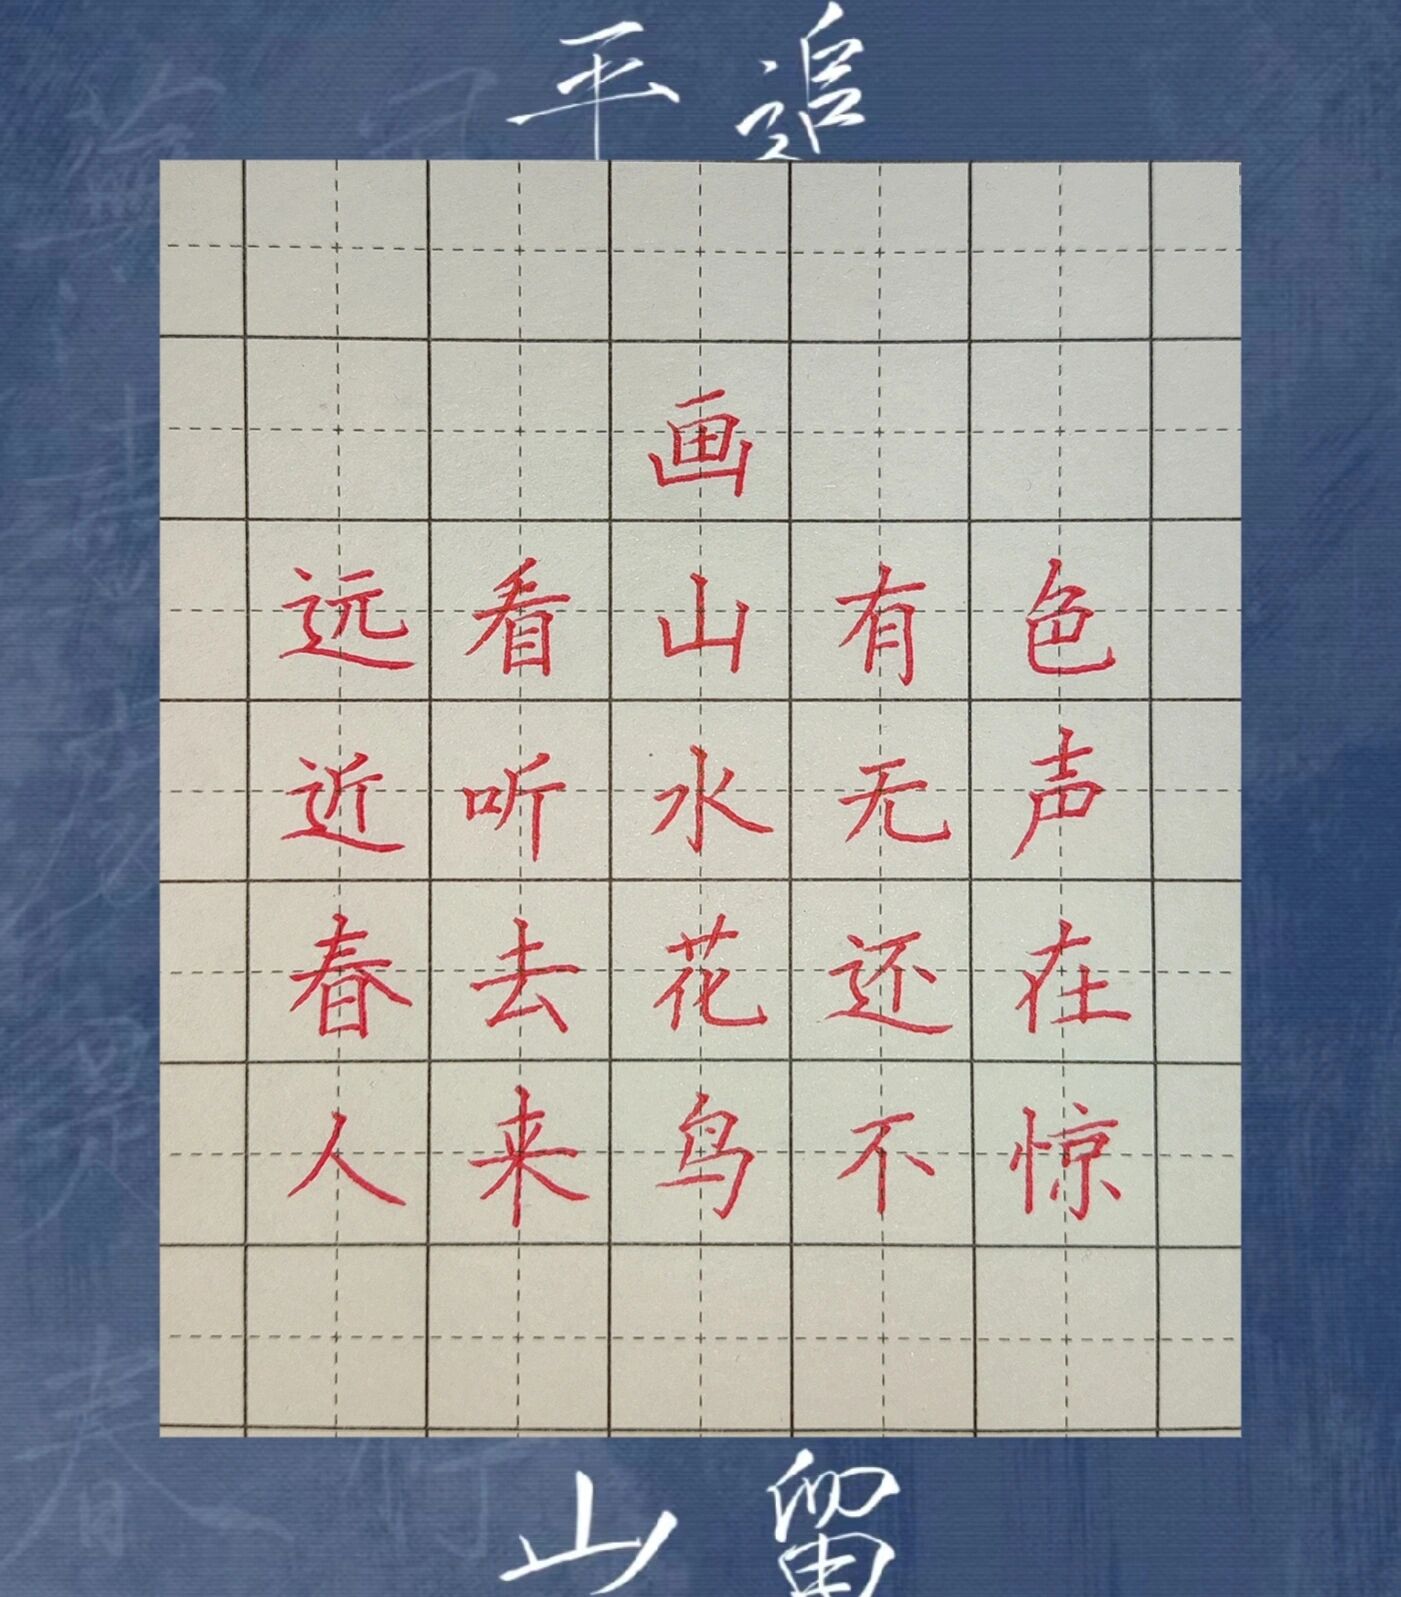 平 追
画
远看山有色
近听水无声
春去花还在
人来鸟不惊
山 留